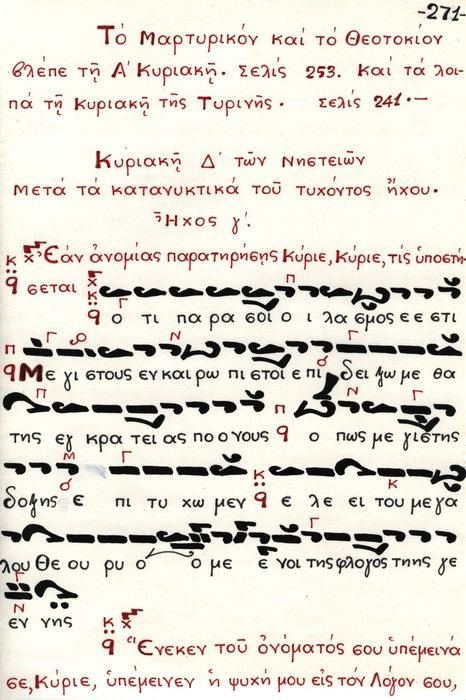 -271-
Τό Μαρτυρικόν καί τό Θεοτοκίον
βλέπε τῇ Α΄ Κυριακῇ. Σελίς 253. Καί τά λοι-
πά τῇ Κυριακῇ τῆς Τυρινῆς. Σελίς 241.-
Κυριακῇ Δ΄ τῶν Νηστειῶν
μετά τά κατανυκτικά τοῦ τυχόντος ἤχου.
Ἦχος γ΄.
Ἐάν ἀνομίας παρατηρήσῃς Κύριε, Κύριε, τίς ὑποστή-
σεται ο τι πα ρα σοι ο ι λα σμος ε ε στι
Με γι στους εν και ρω πι στοι ε πι δει ξω με θα
της εγ κρα τει ας πο ο νους ο πως με γι της
δο ξης ε πι τυ χω μεν ε λε ει του με γα
λου Θε ου ρυ ο ο με ε νοι της φλογος της γε
εν νης
Ἕνεκεν τοῦ ὀνόματός σου ὑπέμεινά
σε, Κύριε, ὑπέμεινεν ἡ ψυχή μου εἰς τόν λόγον σου,